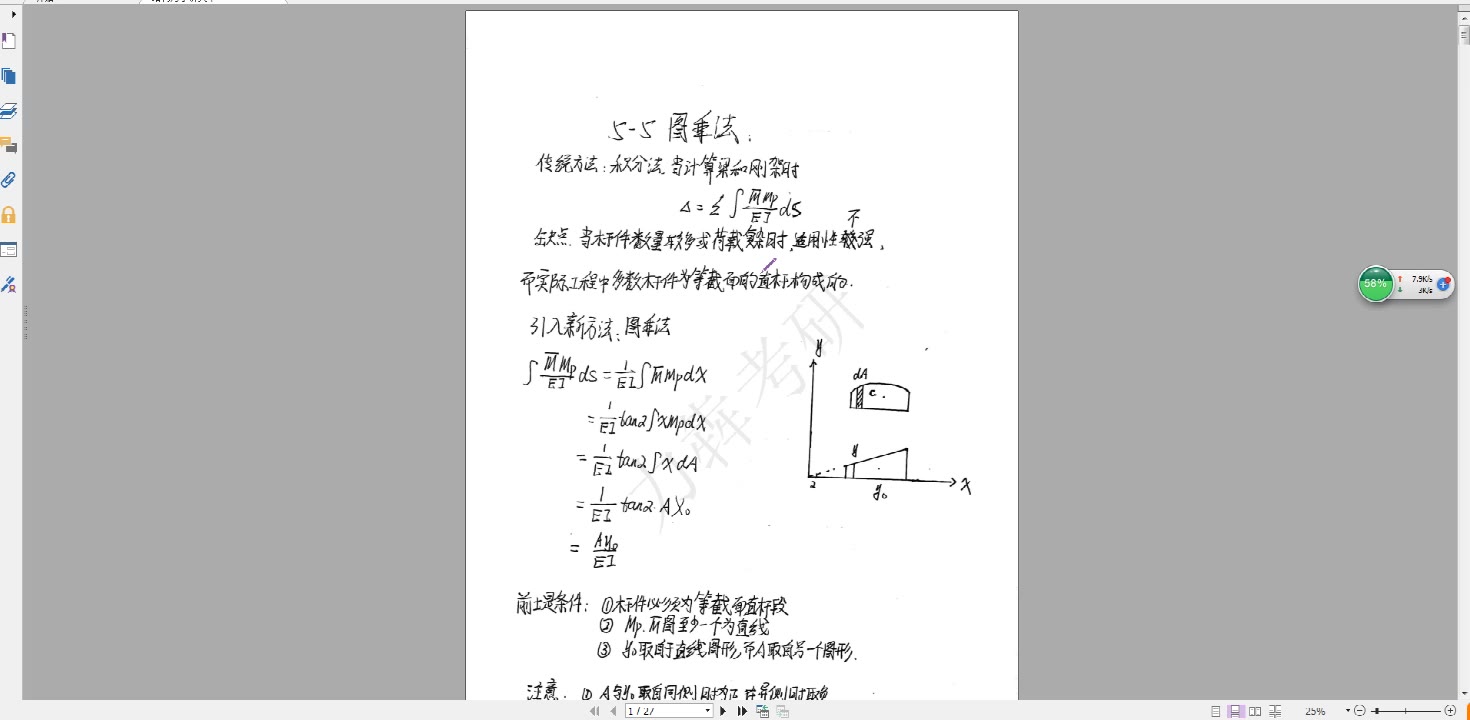 5-5 图乘法:
传统方法:积分法,当计算梁和刚架时
Δ = Σ ∫ M̄Mp/EI ds
不
缺点.当杆件数量较多或荷载复杂时,适用性较强。
而实际工程中多数杆件为等截面的直杆构成的.
引入新方法:图乘法
∫ M̄Mp/EI ds = 1/EI ∫ M̄MpdX
= 1/EI tan2∫XMpdX
= 1/EI tan2∫X dA
= 1/EI tan2 A X₀
= Ay₀/EI
y
dA
C.
y
2
y₀
X
力犇考研
前提条件: ①杆件必须为等截面直杆段
② Mp.M̄图至少一个为直线
③ y₀取自于直线图形,而A取自另一个图形.
注意. ① A与y₀取自同侧时为正
58%
7.9K/s
3K/s
1 / 27
25%